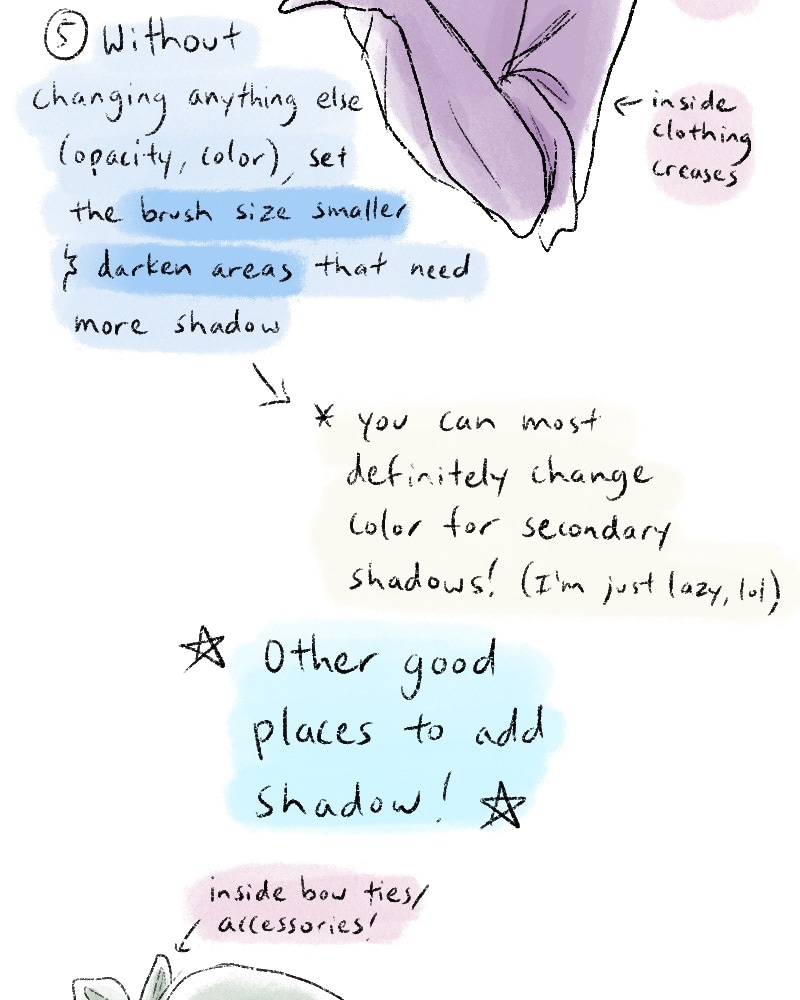 ⑤ Without
changing anything else
(opacity, color), set
the brush size smaller
& darken areas that need
more shadow
← inside
clothing
creases
* you can most
definitely change
color for secondary
shadows! (I'm just lazy, lol)
☆ Other good
places to add
shadow! ☆
inside bow ties/
accessories!